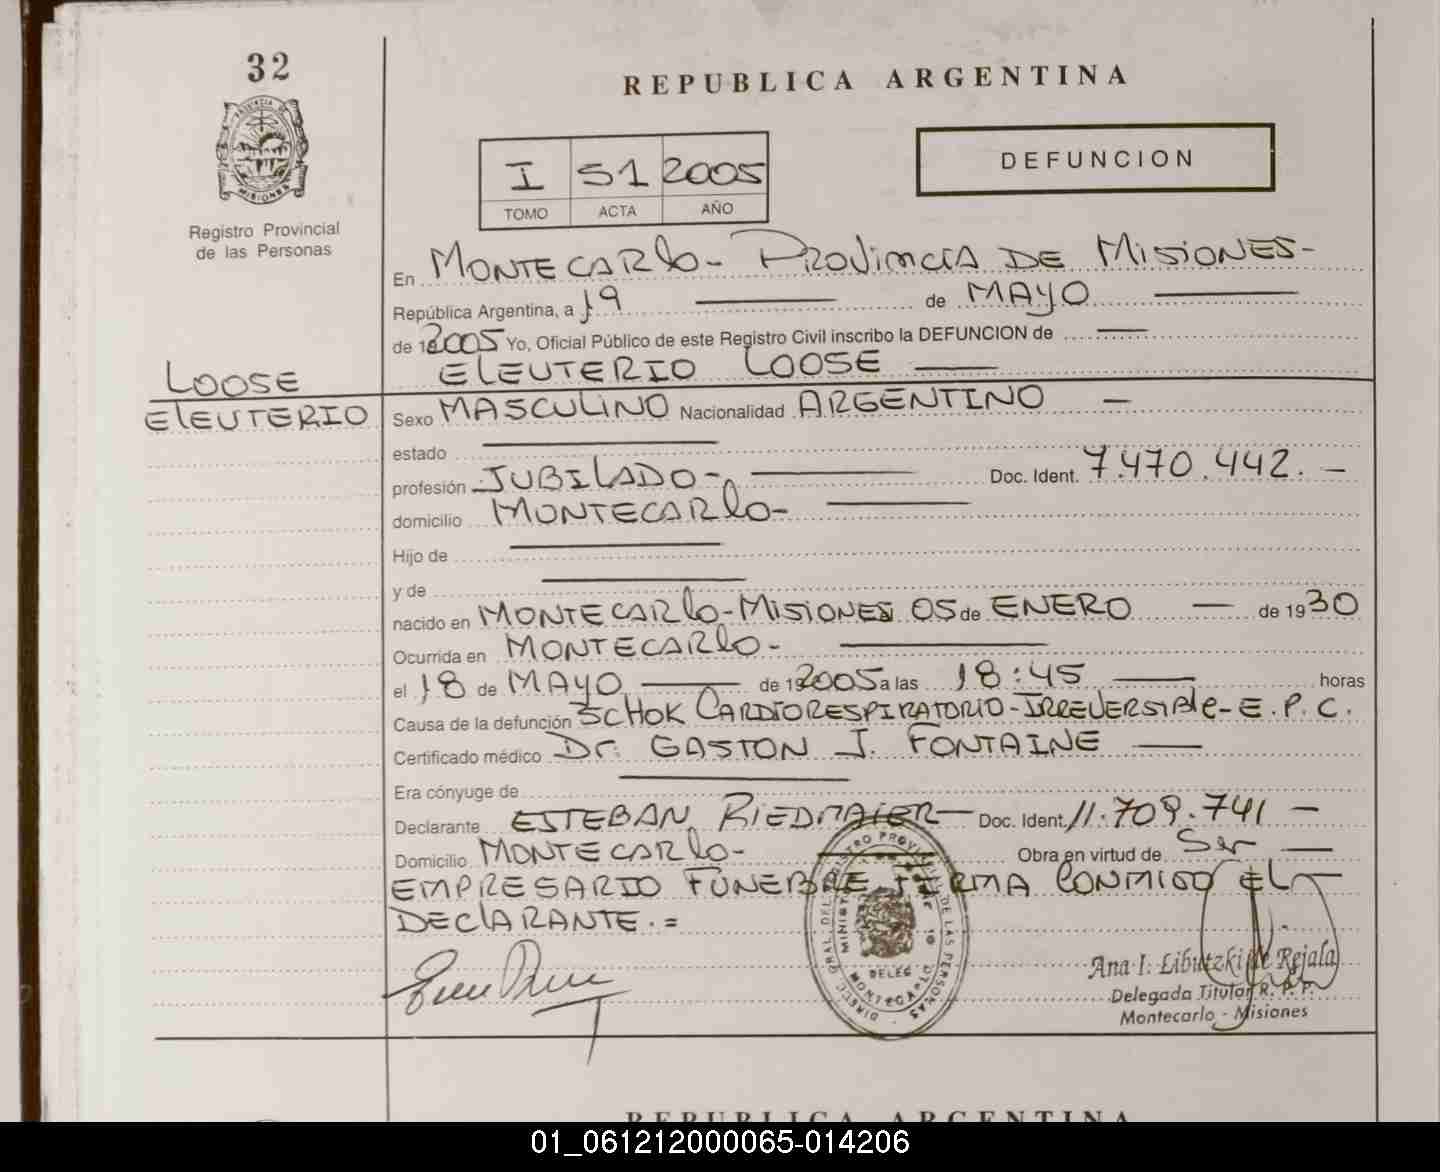 32
REPUBLICA ARGENTINA
PROVINCIA DE
MISIONES
I 51 2005
TOMO ACTA AÑO
DEFUNCION
Registro Provincial
de las Personas
En MONTECARlo- PROVINCIA DE MISIONES-
República Argentina, a 19 de MAYO
de 2005 Yo, Oficial Público de este Registro Civil inscribo la DEFUNCION de
ElEUTERIO LOOSE
LOOSE
ElEUTERIO
Sexo MASCULINO Nacionalidad ARGENTINO —
estado
profesión JUBILADO- Doc. Ident. 7.470.442. —
domicilio MONTECARlo-
Hijo de
y de
nacido en MONTECARlo-MISIONES 05 de ENERO — de 1930
Ocurrida en MONTECARlo-
el 18 de MAYO de 2005 a las 18:45 horas
Causa de la defunción SCHOK CARDIORESPIRATORIO-IRREVERSIBle-E.P.C.
Certificado médico Dr. GASTON J. FONTAINE
Era cónyuge de
Declarante ESTEBAN RIEDMAIER— Doc. Ident. 11.709.741 —
Domicilio MONTECARlo- Obra en virtud de Ser —
EMPRESARIO FUNEBRE FIRMA CONMIGO EL—
DEClARANTE.=
Ana I. Libutzki de Rejala
Delegada Titular R. P. P.
Montecarlo - Misiones
REPUBLICA ARGENTINA
01_061212000065-014206